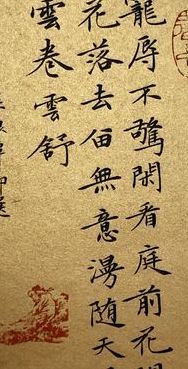 寵辱不驚閑看庭前花開
花落去留無意漫随天
雲卷雲舒